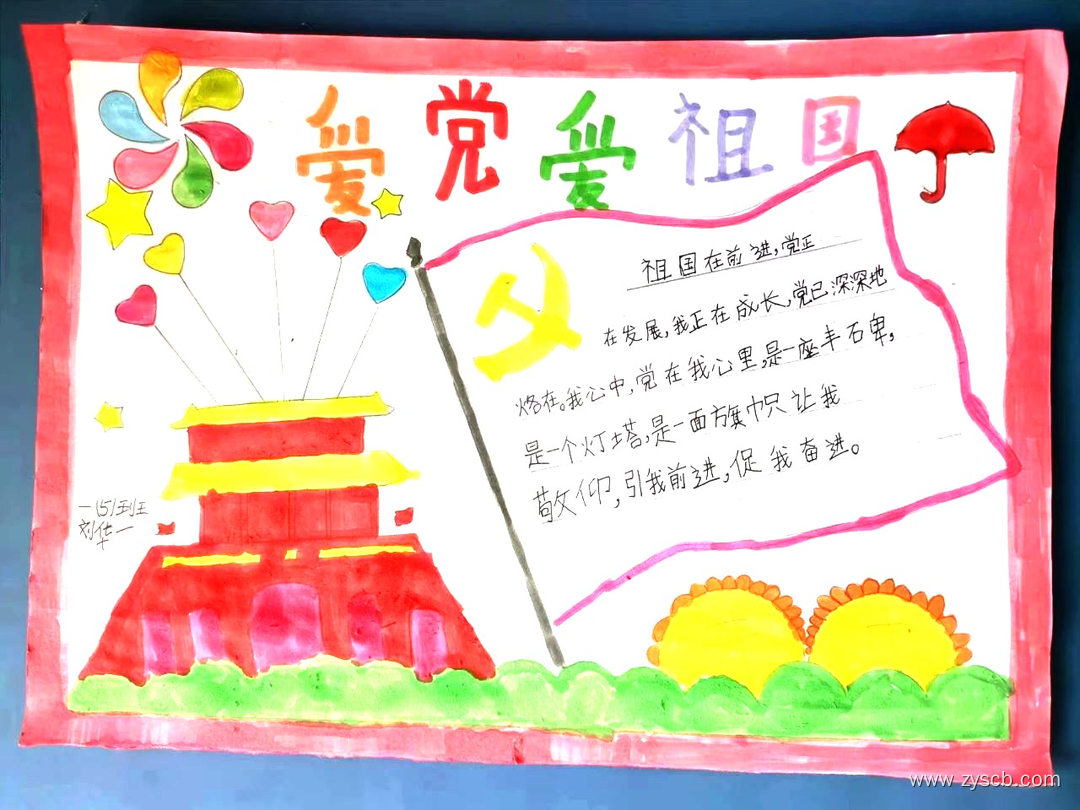 爱党爱祖国
祖国在前进,党正
在发展,我正在成长,党已深深地
烙在。我心中,党在我心里,是一座丰石卑,
是一个灯塔,是一面旗帜让我
敬仰,引我前进,促我奋进。
一(5)班王
刘华一
www.zyscb.com